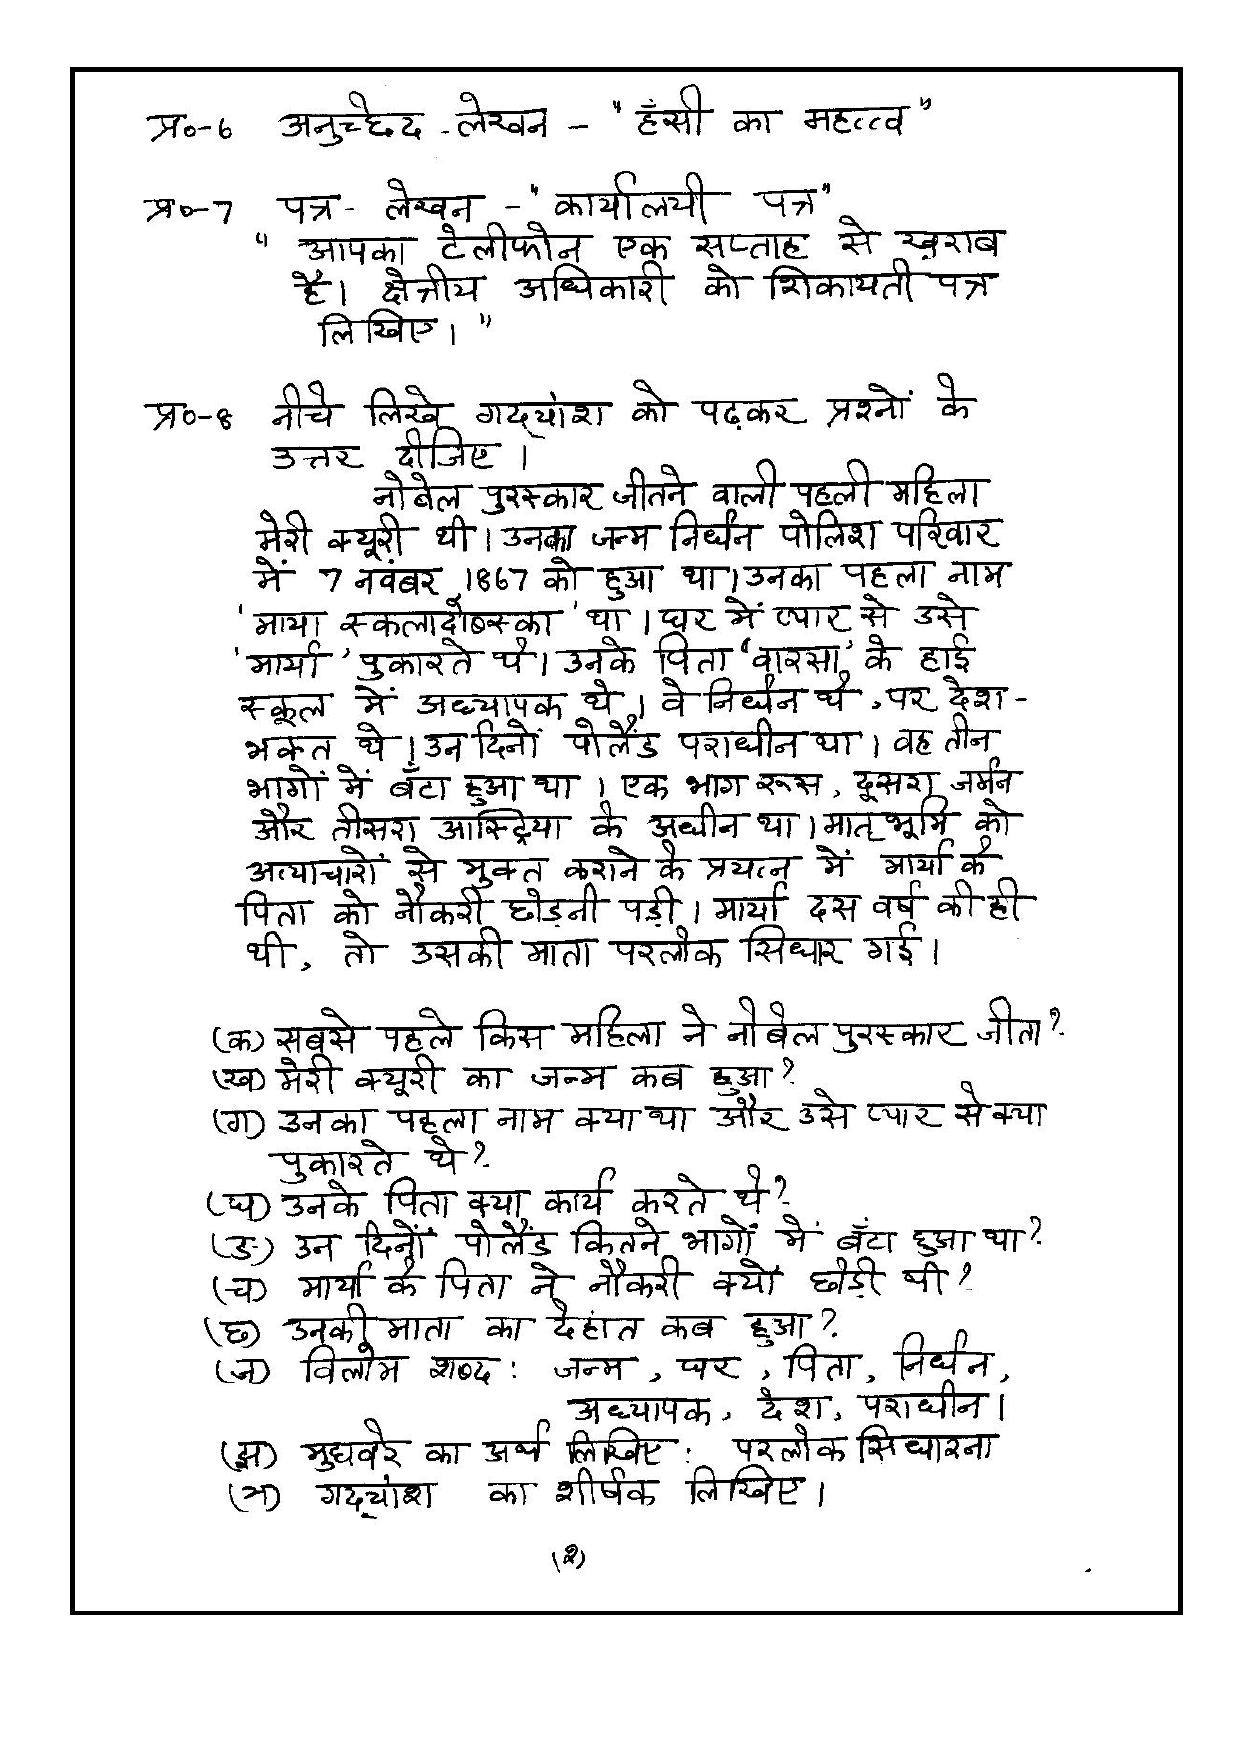 प्र०-6 अनुच्छेद - लेखन - "हँसी का महत्त्व"
प्र०-7 पत्र - लेखन - "कार्यालयी पत्र"
" आपका टेलीफोन एक सप्ताह से ख़राब
है। क्षेत्रीय अधिकारी को शिकायती पत्र
लिखिए। "
प्र०-8 नीचे लिखे गद्यांश को पढ़कर प्रश्नों के
उत्तर दीजिए।
नोबेल पुरस्कार जीतने वाली पहली महिला
मेरी क्यूरी थी। उनका जन्म निर्धन पोलिश परिवार
में 7 नवंबर, 1867 को हुआ था। उनका पहला नाम
'माया स्कलादोवस्का' था। घर में प्यार से उसे
'मार्या' पुकारते थे। उनके पिता 'वारसा' के हाई
स्कूल में अध्यापक थे। वे निर्धन थे, पर देश-
भक्त थे। उन दिनों पोलैंड पराधीन था। वह तीन
भागों में बँटा हुआ था। एक भाग रूस, दूसरा जर्मन
और तीसरा आस्ट्रिया के अधीन था। मातृभूमि को
अत्याचारों से मुक्त कराने के प्रयत्न में मार्या के
पिता को नौकरी छोड़नी पड़ी। मार्या दस वर्ष की ही
थी, तो उसकी माता परलोक सिधार गई।
(क) सबसे पहले किस महिला ने नोबेल पुरस्कार जीता?
(ख) मेरी क्यूरी का जन्म कब हुआ?
(ग) उनका पहला नाम क्या था और उसे प्यार से क्या
पुकारते थे?
(घ) उनके पिता क्या कार्य करते थे?
(ङ) उन दिनों पोलैंड कितने भागों में बँटा हुआ था?
(च) मार्या के पिता ने नौकरी क्यों छोड़ी थी?
(छ) उनकी माता का देहांत कब हुआ?
(ज) विलोम शब्द: जन्म, घर, पिता, निर्धन,
अध्यापक, देश, पराधीन।
(झ) मुहावरे का अर्थ लिखिए: परलोक सिधारना
(ञ) गद्यांश का शीर्षक लिखिए।
(2)